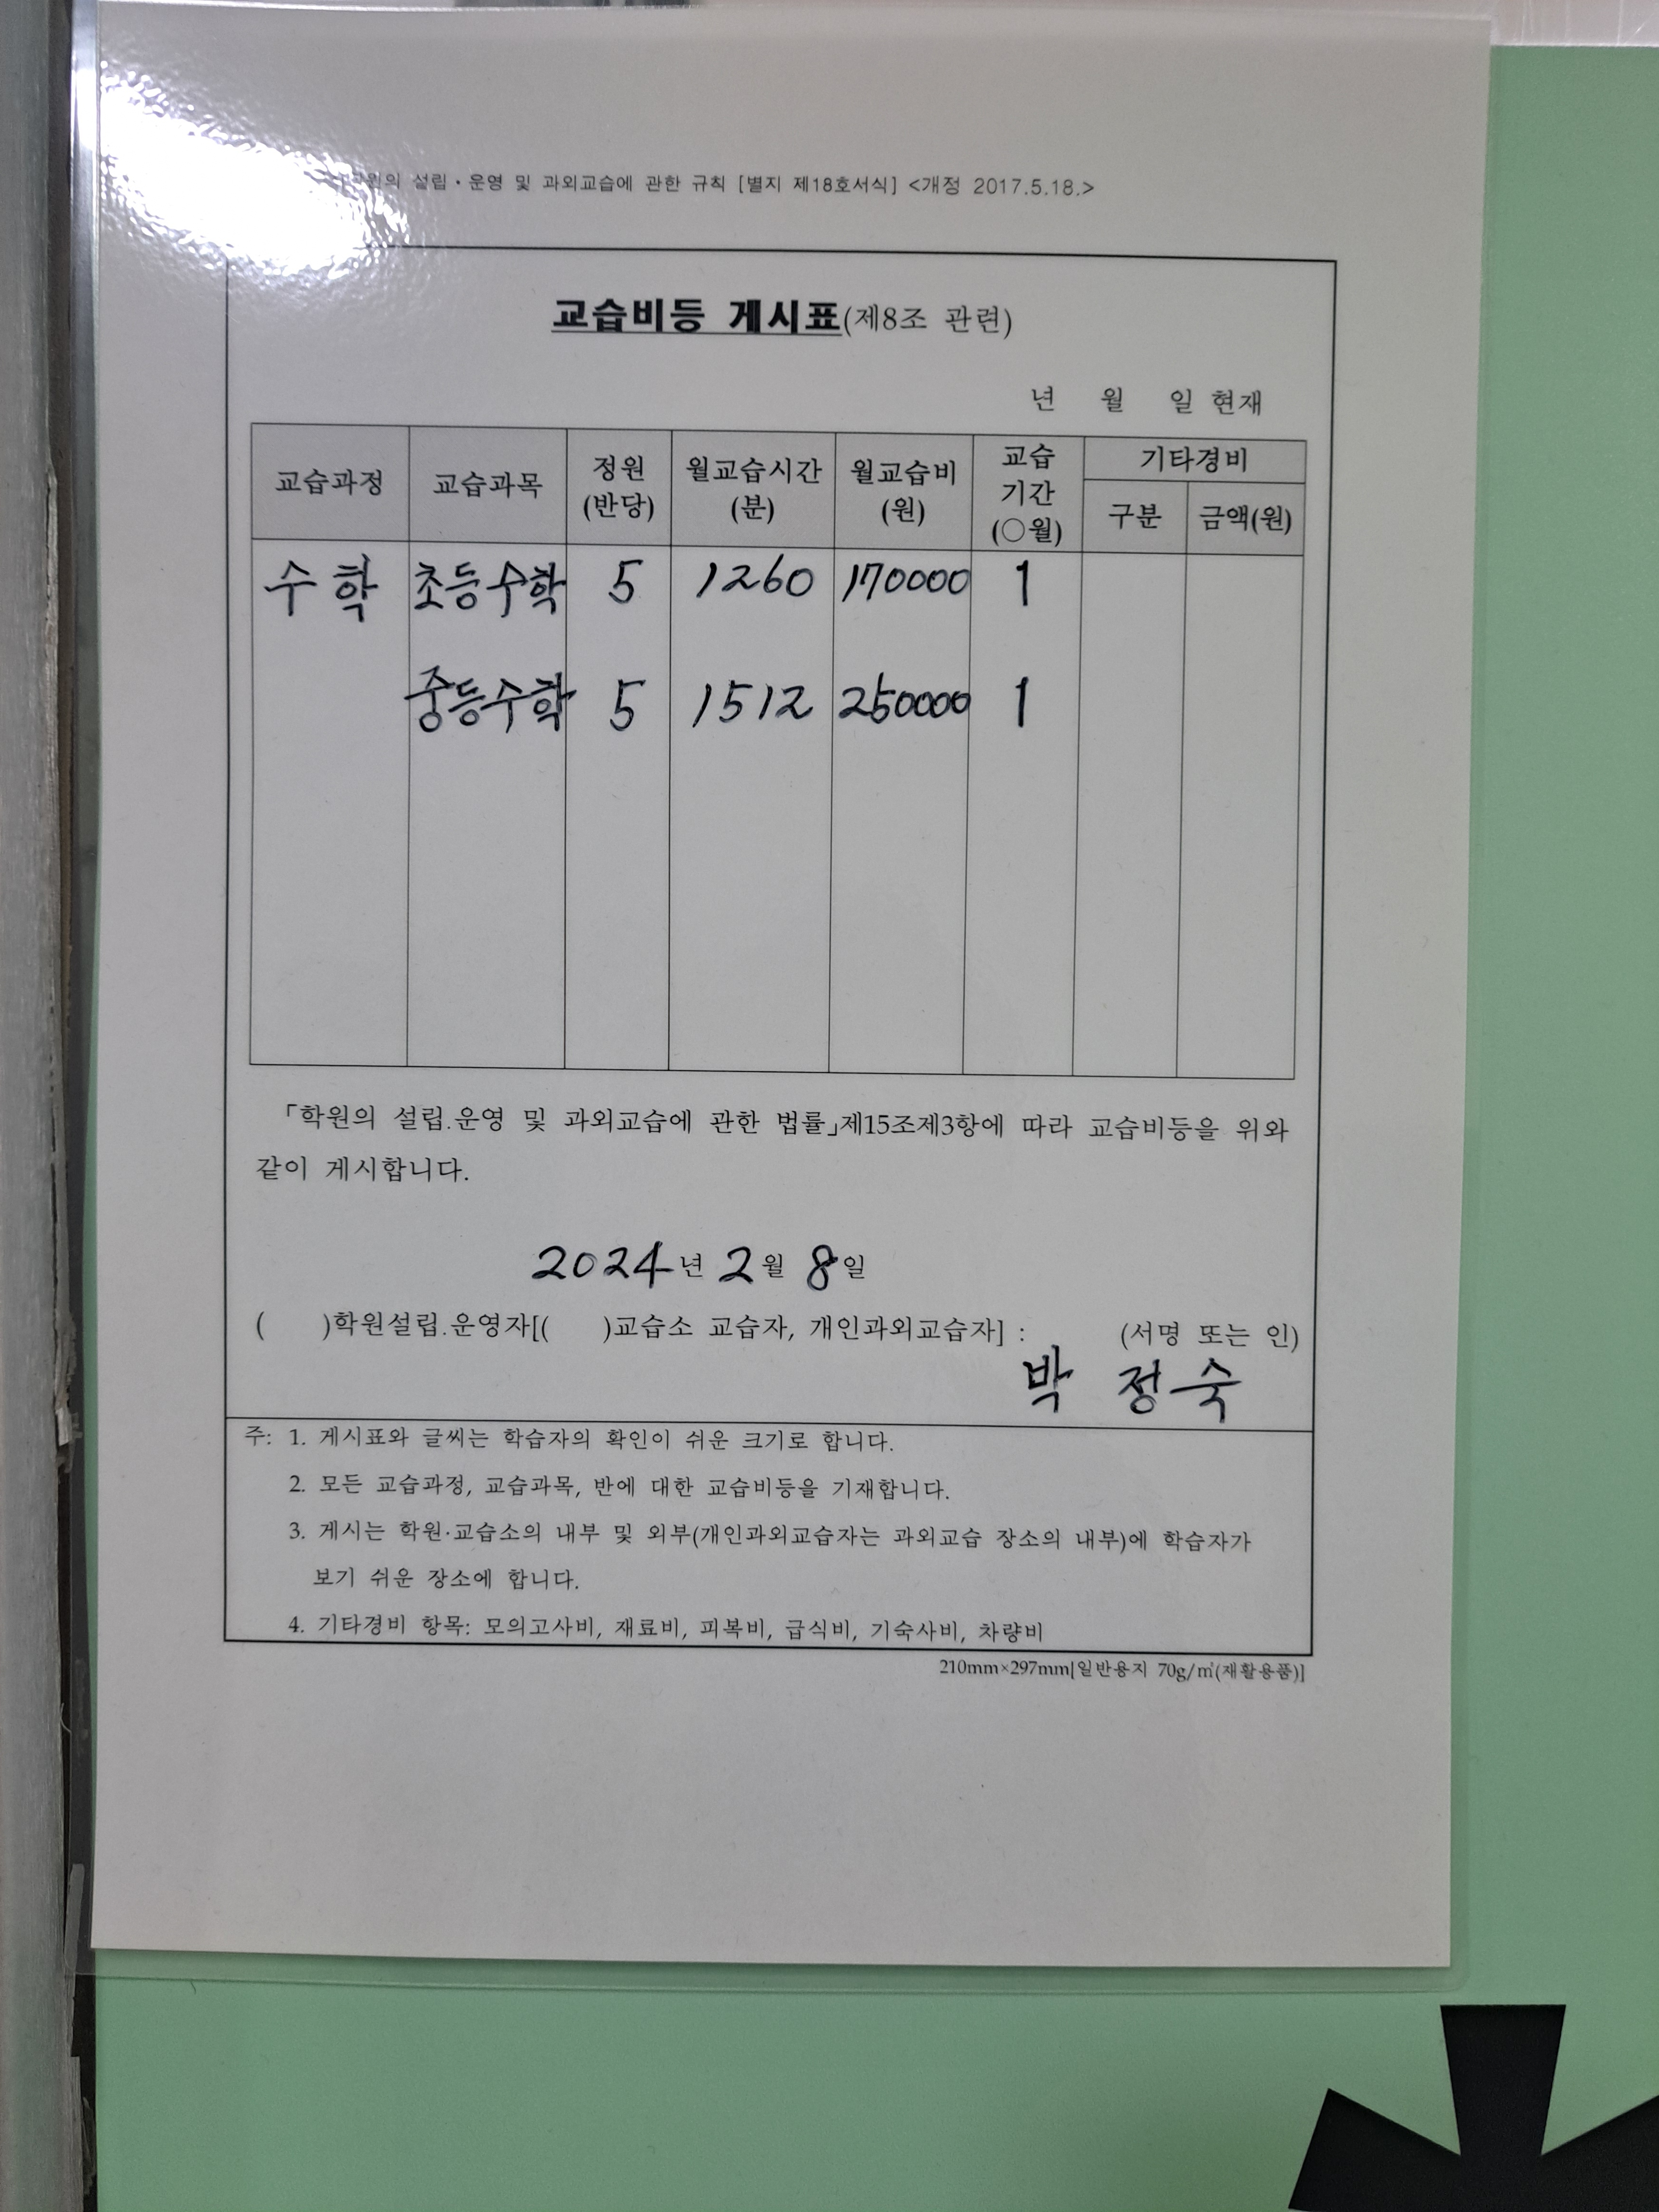 학원의 설립·운영 및 과외교습에 관한 규칙 [별지 제18호서식] <개정 2017.5.18.>
교습비등 게시표(제8조 관련)
년 월 일 현재
교습과정 교습과목 정원(반당) 월교습시간(분) 월교습비(원) 교습기간(○월) 기타경비
구분 금액(원)
수학 초등수학 5 1260 170000 1
중등수학 5 1512 250000 1
「학원의 설립.운영 및 과외교습에 관한 법률」제15조제3항에 따라 교습비등을 위와
같이 게시합니다.
2024년 2월 8일
( )학원설립.운영자[( )교습소 교습자, 개인과외교습자] : (서명 또는 인)
박 정숙
주: 1. 게시표와 글씨는 학습자의 확인이 쉬운 크기로 합니다.
2. 모든 교습과정, 교습과목, 반에 대한 교습비등을 기재합니다.
3. 게시는 학원·교습소의 내부 및 외부(개인과외교습자는 과외교습 장소의 내부)에 학습자가
보기 쉬운 장소에 합니다.
4. 기타경비 항목: 모의고사비, 재료비, 피복비, 급식비, 기숙사비, 차량비
210mm×297mm[일반용지 70g/㎡(재활용품)]